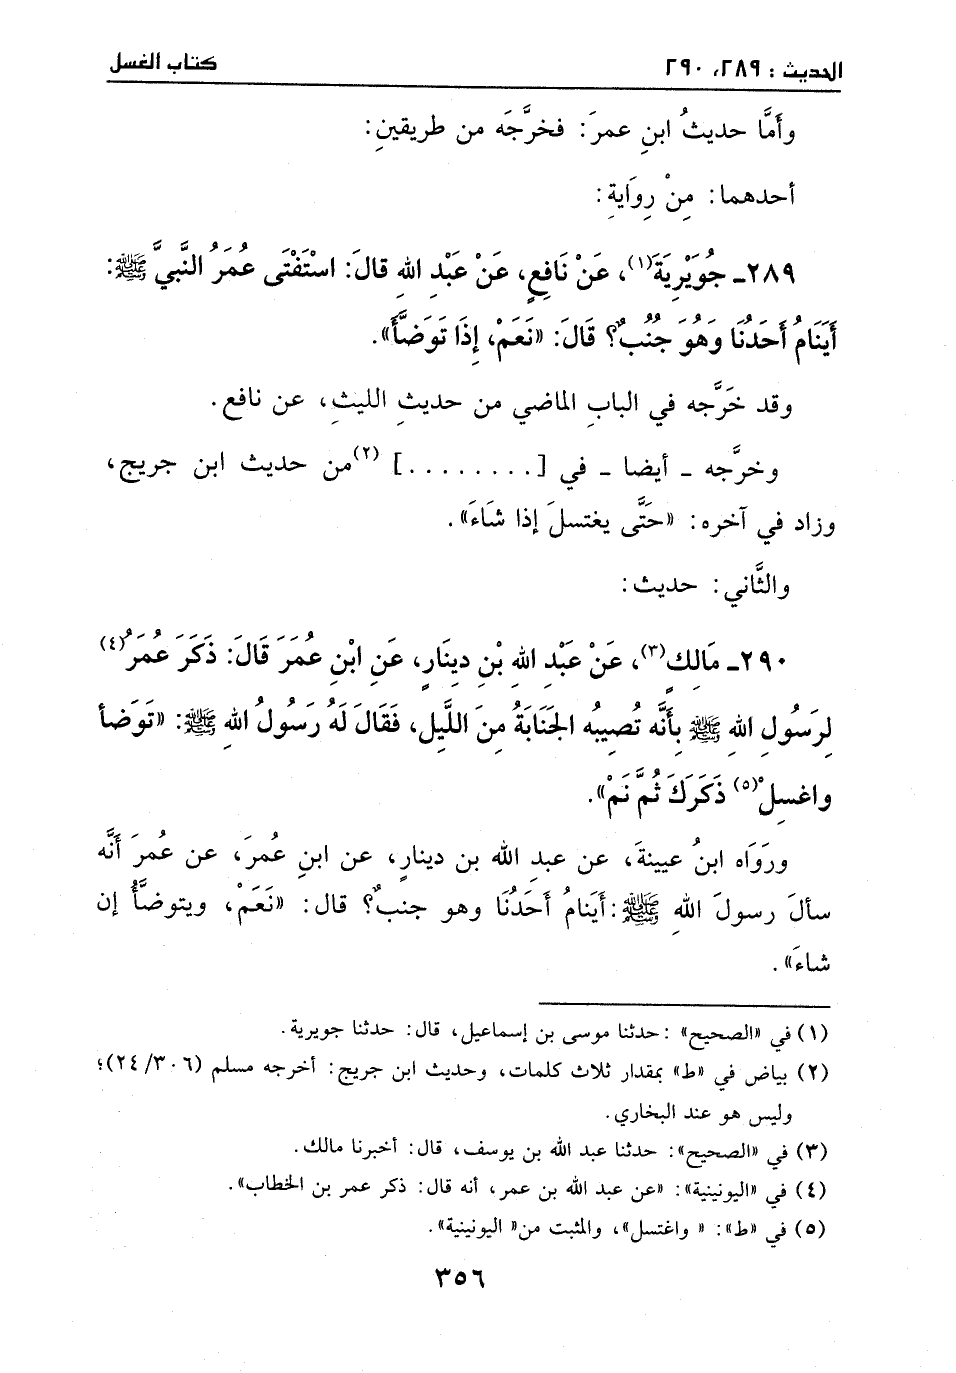 الحديث : ٢٨٩، ٢٩٠ كتاب الغسل
وأمَّا حديثُ ابنِ عمرَ: فخرَّجَه من طريقينِ:
أحدهما: مِنْ رِوَايةِ:
٢٨٩ـ جُوَيْرِيَةَ(١)، عَنْ نَافِعٍ، عَنْ عَبْدِ اللهِ قالَ: اسْتَفْتَى عُمَرُ النَّبيَّ ﷺ:
أَيَنَامُ أَحَدُنَا وَهُوَ جُنُبٌ؟ قَالَ: «نَعَمْ، إِذَا تَوَضَّأَ».
وقد خَرَّجه في البابِ الماضي من حديثِ الليثِ، عن نافع.
وخرَّجه ـ أيضا ـ في [ . . . . . . . . ] (٢)من حديث ابن جريج،
وزاد في آخره: «حَتَّى يغتسلَ إذا شَاءَ».
والثَّاني: حديث:
٢٩٠ـ مَالِكٍ(٣)، عَنْ عَبْدِ اللهِ بْنِ دِينَارٍ، عَنِ ابْنِ عُمَرَ قَالَ: ذَكَرَ عُمَرُ(٤)
لِرَسُولِ اللهِ ﷺ بِأَنَّه تُصِيبُه الجَنَابَةُ مِنَ اللَّيلِ، فَقَالَ لَهُ رَسُولُ اللهِ ﷺ: «تَوَضأ
واغسِلْ(٥) ذَكَرَكَ ثُمَّ نَمْ».
ورَوَاه ابنُ عيينةَ، عن عبدِ الله بن دينارٍ، عن ابنِ عُمرَ، عن عُمرَ أَنَّه
سألَ رسولَ اللهِ ﷺ:أَيَنامُ أَحَدُنَا وهو جنبٌ؟ قال: «نَعَمْ، ويتوضَّأُ إن
شاءَ».
(١) في «الصحيح» :حدثنا موسى بن إسماعيل، قال: حدثنا جويرية.
(٢) بياض في «ط» بمقدار ثلاث كلمات، وحديث ابن جريج: أخرجه مسلم (٢٤/٣٠٦)؛
وليس هو عند البخاري.
(٣) في «الصحيح»: حدثنا عبد الله بن يوسف، قال: أخبرنا مالك.
(٤) في «اليونينية»: «عن عبد الله بن عمر، أنه قال: ذكر عمر بن الخطاب».
(٥) في «ط»: « واغتسل»، والمثبت من« اليونينية».
٣٥٦